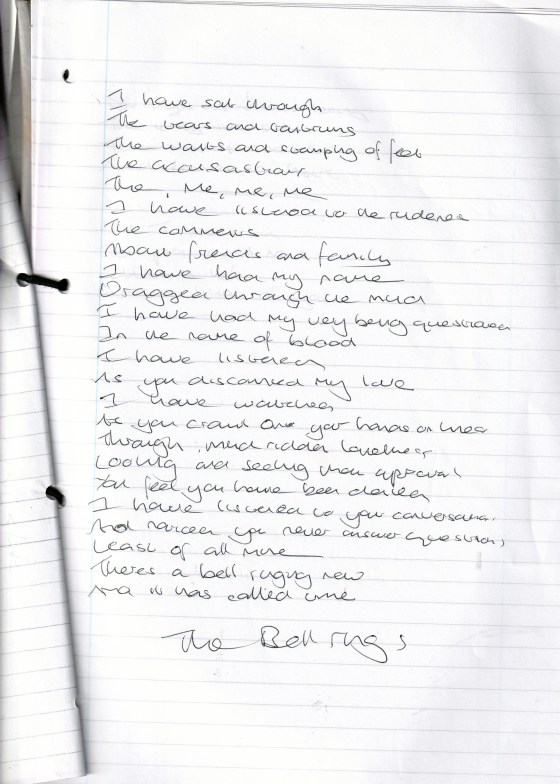 I have sat through
The tears and tantrums
The wants and stamping of feet
The accusations
The, me, me, me
I have listened to the rudeness
The comments
About friends and family
I have had my name
Dragged through the mud
I have had my very being questioned
In the name of blood
I have listened
As you discarded my love
I have watched
As you crawl on your hands on knees
Through, mud ridden loneliness
Looking and seeking their approval
You feel you have been denied
I have listened to your conversations
And noticed you never answer questions,
Least of all mine
Theres a bell ringing now
And it has called time
The Bell rings